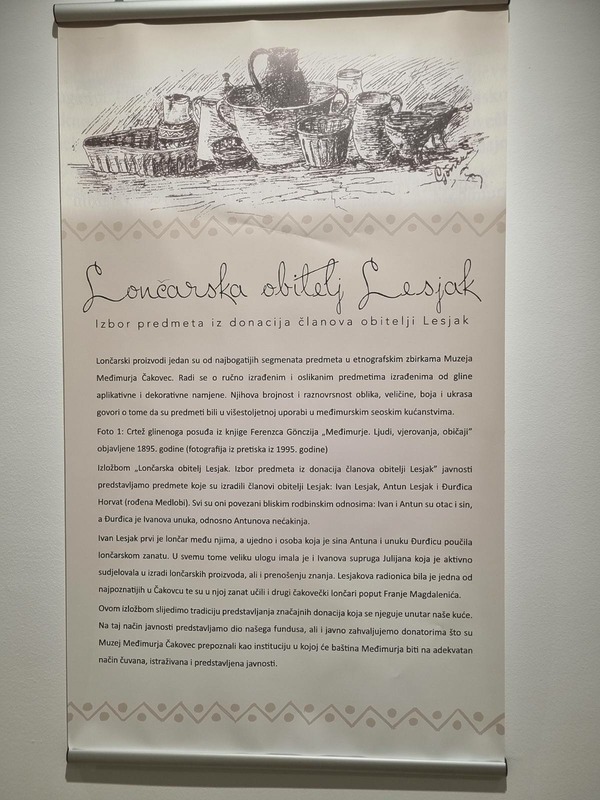 Lončarska obitelj Lesjak
Izbor predmeta iz donacija članova obitelji Lesjak
Lončarski proizvodi jedan su od najbogatijih segmenata predmeta u etnografskim zbirkama Muzeja
Međimurja Čakovec. Radi se o ručno izrađenim i oslikanim predmetima izrađenim od gline
aplikativne i dekorativne namjene. Njihova brojnost i raznovrsnost oblika, veličine, boja i ukrasa
govori o tome da su predmeti bili u višestoljetnoj uporabi u međimurskim seoskim kućanstvima.
Foto 1: Crtež glinenoga posuđa iz knjige Ferenzca Gönczija „Međimurje. Ljudi, vjerovanja, običaji“
objavljene 1895. godine (fotografija iz pretiska iz 1995. godine)
Izložbom „Lončarska obitelj Lesjak. Izbor predmeta iz donacija članova obitelji Lesjak“ javnosti
predstavljamo predmete koje su izradili članovi obitelji Lesjak: Ivan Lesjak, Antun Lesjak i Đurđica
Horvat (rođena Medlobi). Svi su oni povezani bliskim rodbinskim odnosima: Ivan i Antun su otac i sin,
a Đurđica je Ivanova unuka, odnosno Antunova nećakinja.
Ivan Lesjak prvi je lončar među njima, a ujedno i osoba koja je sina Antuna i unuku Đurđicu poučila
lončarskom zanatu. U svemu tome veliku ulogu imala je i Ivanova supruga Julijana koja je aktivno
sudjelovala u izradi lončarskih proizvoda, ali i prenošenju znanja. Lesjakova radionica bila je jedna od
najpoznatijih u Čakovcu te su u njoj zanat učili i drugi čakovečki lončari poput Franje Magdalenića.
Ovom izložbom slijedimo tradiciju predstavljanja značajnih donacija koja se njeguje unutar naše kuće.
Na taj način javnosti predstavljamo dio našega fundusa, ali i javno zahvaljujemo donatorima što su
Muzej Međimurja Čakovec prepoznali kao instituciju u kojoj će baština Međimurja biti na adekvatan
način čuvana, istraživana i predstavljena javnosti.